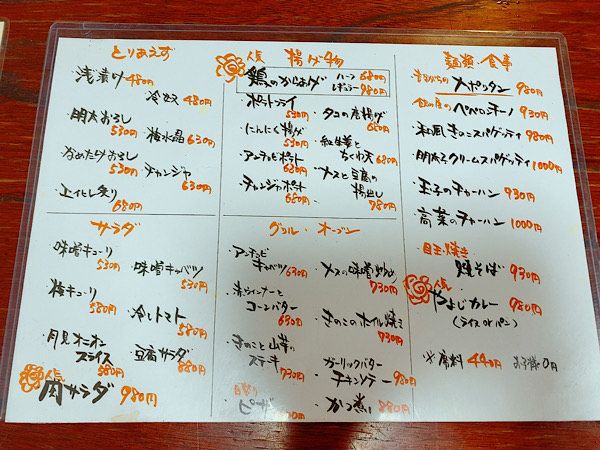 とりあえず
浅漬け 480円
冷奴 480円
明太おろし
530円
梅水晶 630円
なめたけおろし
530円
チャンジャ
630円
エイヒレ炙り
680円
人気 揚げ物
鶏のからあげ ハーフ 680円
レギュラー 980円
ポテトフライ
530円
タコの唐揚げ
680円
にんにく揚げ
530円
紅生姜と
ちくわ天 680円
アンチョビポテト
680円
ナスと豆腐の
揚出し
780円
チャンジャポテト
680円
麺類・食事
昔ながらの ナポリタン 980円
ペペロンチーノ 930円
和風きのこスパゲッティ 980円
明太子クリームスパゲッティ 1000円
玉子のチャーハン 930円
高菜のチャーハン 1000円
目玉焼き
焼そば 930円
人気
やよいカレー 980円
(ライス or パン)
※席料 440円 お子様0円
サラダ
味噌キューリ
530円
味噌キャベツ
530円
梅キューリ
580円
冷しトマト
580円
月見オニオン
スライス
580円
豆腐サラダ
880円
人気
肉サラダ 980円
グリル・オーブン
アンチョビ
キャベツ 630円
ナスの味噌炒め
730円
赤ウィンナーと
コーンバター
630円
きのこのホイル焼き
730円
きのこと山芋の
ステキ
730円
ガーリックバター
チキンソテー 980円
かつ煮 880円